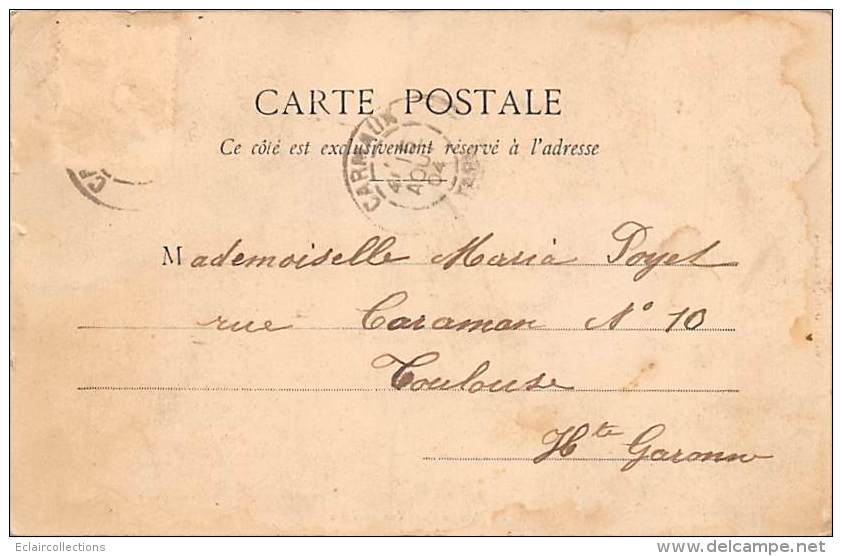 CARTE POSTALE
Ce côté est exclusivement réservé à l'adresse
CARMAUX
AOU
04
TARN
CA
Mademoiselle Maria Poyet
rue Caraman N° 10
Toulouse
Hte Garonne
Eclaircollections
www.delcampe.net